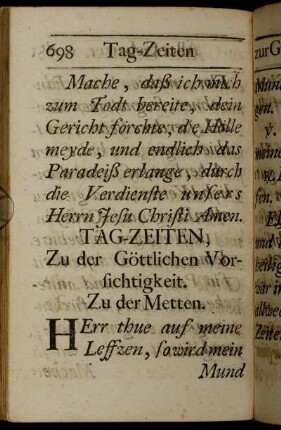 698 Tag-Zeiten
Mache, daß ich mich
zum Todt bereite, dein
Gericht förchte, die Hölle
meyde, und endlich das
Paradeiß erlange, durch
die Verdienste unsers
Herrn Jesu Christi Amen.
TAG-ZEITEN,
Zu der Göttlichen Vor-
sichtigkeit.
Zu der Metten.
HErr thue auf meine
Leffzen, so wird mein
Mund
zur G